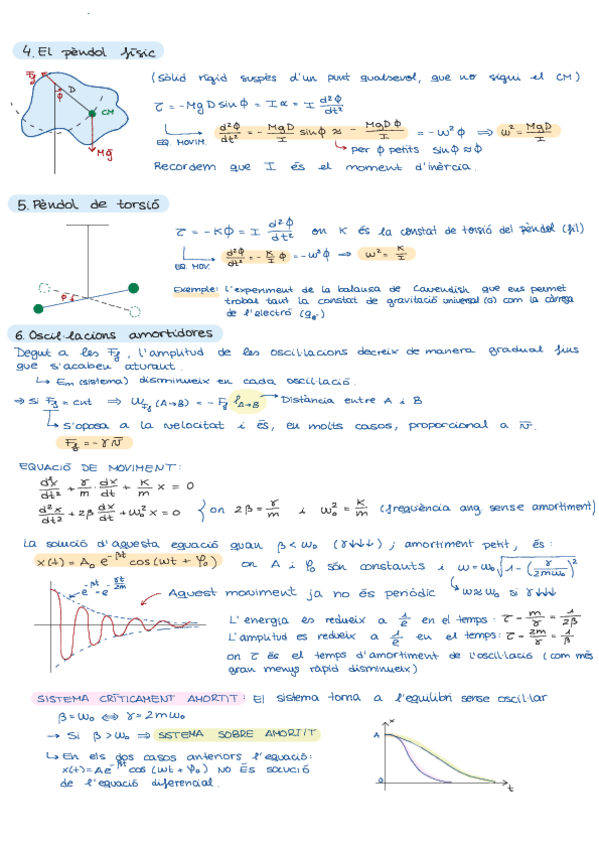 4. El pèndol físic
(Sòlid rígid suspès d'un punt qualsevol, que no sigui el CM)
Fg D ϕ CM Mg⃗
τ = -MgD sinϕ = Iα = I d²ϕ/dt²
EQ. MOVIM. d²ϕ/dt² = - MgD/I sinϕ ≈ - MgDϕ/I = -ω²ϕ ⇒ ω² = MgD/I
per ϕ petits sinϕ≈ϕ
Recordem que I és el moment d'inèrcia.
5. Pèndol de torsió
τ = -Kϕ = I d²ϕ/dt² on K és la constat de torsió del pèndol (fil)
EQ. MOV. d²ϕ/dt² = - K/I ϕ = -ω²ϕ ⇒ ω² = K/I
ϕ
Exemple: l'experiment de la balausa de Cavendish que ens permet
trobar taut la constat de gravitació universal (G) com la càrrega
de l'electró (qe-)
6. Oscil·lacions amortidores
Degut a les Ff, l'amplitud de les oscil·lacions decreix de manera gradual fins
que s'acabeu aturant.
↳ Em (sistema) disminueix en cada oscil·lació.
→ Si Ff = cnt ⇒ WFf (A→B) = - Ff lA→B → Distància entre A i B
↳ S'oposa a la velocitat i és, en molts casos, proporcional a v⃗.
Ff = -γv⃗
EQUACIÓ DE MOVIMENT:
d²x/dt² + γ/m · dx/dt + K/m x = 0
d²x/dt² + 2β dx/dt + ω₀² x = 0 } on 2β = γ/m i ω₀² = K/m (freqüència ang sense amortiment)
La solució d'aquesta equació quan β < ω₀ (γ↓↓↓); amortiment petit, és:
x(t) = A₀ e^-βt cos(ωt + φ₀) on A i φ₀ són constants i ω = ω₀ √(1 - (γ/2mω₀)²)
↳ ω≈ω₀ si γ↓↓
e^-βt = e^-γt/2m
Aquest moviment ja no és periòdic
L'energia es redueix a 1/e en el temps: τ = m/γ = 1/2β
L'amplitud es redueix a 1/e en el temps: τ = 2m/γ = 1/β
on τ és el temps d'amortiment de l'oscil·lació (com més
gran menys ràpid disminueix)
SISTEMA CRÍTICAMENT AMORTIT: El sistema torna a l'equilibri sense oscil·lar
β = ω₀ ⇔ γ = 2mω₀
→ Si β > ω₀ ⇒ SISTEMA SOBRE AMORTIT
↳ En els dos casos anteriors l'equació:
x(t) = Ae^-βt cos(ωt + φ₀) NO ÉS SOLUCIÓ
de l'equació diferencial.
x
A
0
t